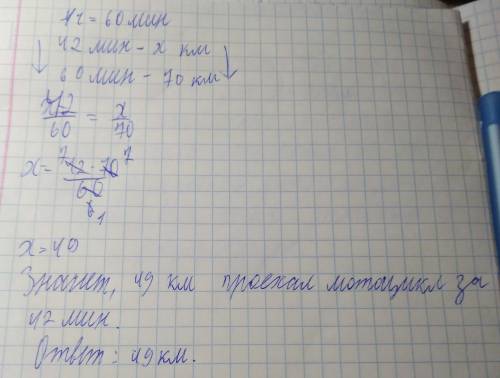 1ч = 60мин
42 мин - x км
60 мин - 70 км
42/60 = x/70
x = 42·70/60
7 7
6 1
x = 49
Значит, 49 км проехал мотоцикл за
42 мин.
Ответ: 49 км.